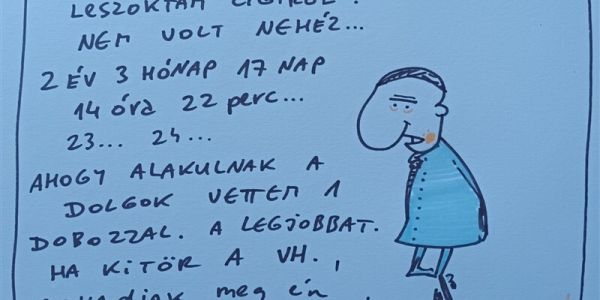 LESZOKTAM
NEM VOLT NEHÉZ...
2 ÉV 3 HÓNAP 17 NAP
14 óra 22 perc...
23... 24...
AHOGY ALAKULNAK A
DOLGOK VETTEM 1
DOBOZZAL. A LEGJOBBAT.
HA KITÖR A VH.,
meg én